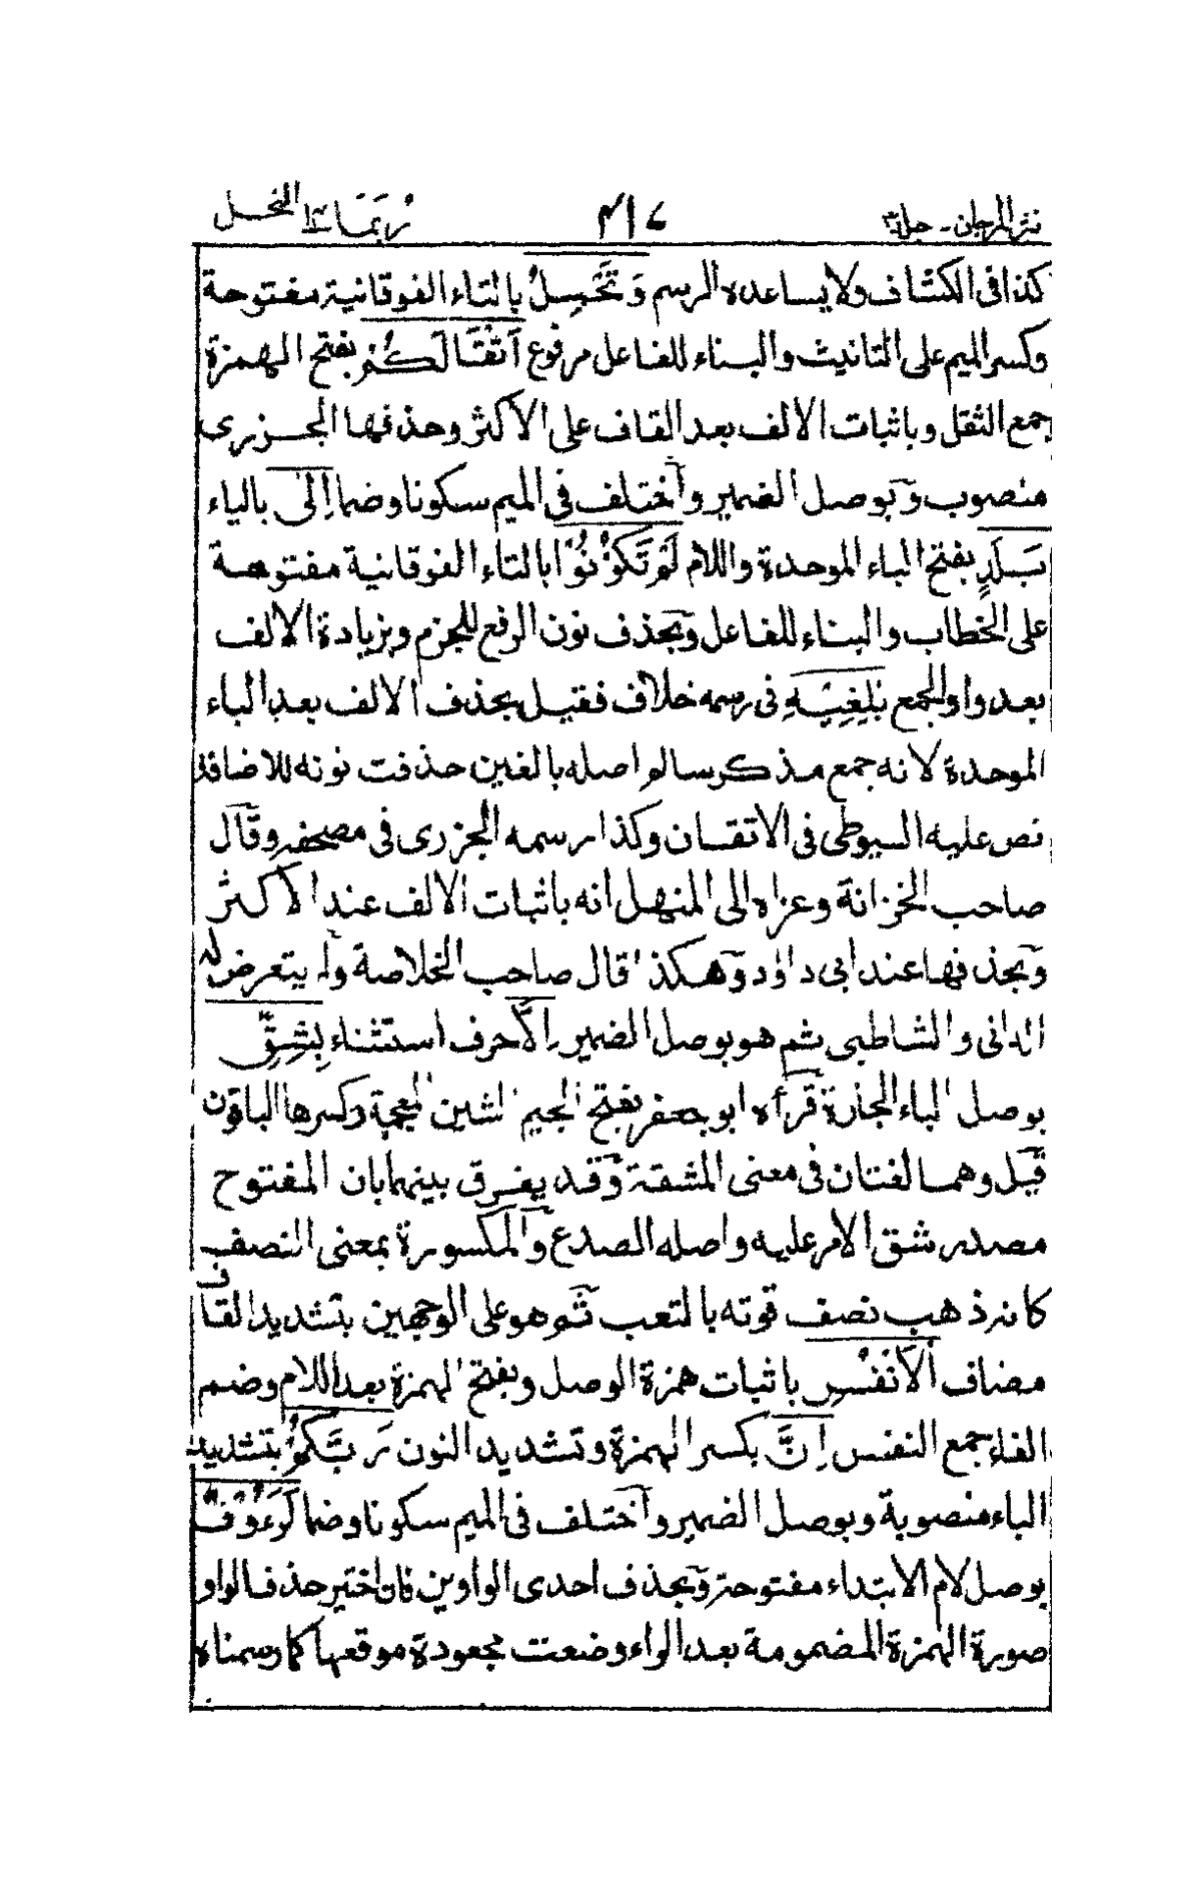 نثر المرجان - جلد٣ ٤١٧ ربما ١٤ النحل
كذا فى الكشاف ولا يساعده الرسم وَتَحْمِلُ بالتاء الفوقانية مفتوحة
وكسر الميم على التانيث والبناء للفاعل مرفوع اَثْقَالَكُمْ بفتح الهمزة
جمع الثقل وباثبات الالف بعد القاف على الاكثر وحذفها الجزرى
منصوب وبوصل الضمير واختلف فى الميم سكونا وضما اِلٰى بالياء
بَلَدٍ بفتح الباء الموحدة واللام لَمْ تَكُوْنُوْا بالتاء الفوقانية مفتوحة
على الخطاب والبناء للفاعل وبحذف نون الرفع للجزم وبزيادة الالف
بعد واو الجمع بٰلِغِيْهِ فى رسمه خلاف فقيل بحذف الالف بعد الباء
الموحدة لانه جمع مذكر سالم اصله بالغين حذفت نونه للاضافة
نص عليه السيوطى فى الاتقان وكذا رسمه الجزرى فى مصحفه وقال
صاحب الخزانة وعزاه الى المنهل انه باثبات الالف عند الاكثر
وبحذفها عند ابى داؤد وهكذا قال صاحب الخلاصة ولم يتعرض له
الدانى والشاطبى ثم هو بوصل الضمير اِلَّا حرف استثناء بِشِقِّ
بوصل الباء الجارة قرأه ابو جعفر بفتح الجيم الشين المعجمة وكسرها الباقون
قيل وهما لغتان فى معنى المشقة وقد يفرق بينهما بان المفتوح
مصدر شق الامر عليه واصله الصدع والمكسورة بمعنى النصف
كانه ذهب نصف قوته بالتعب ثم هو على الوجهين بتشديد القاف
مضاف اَلْاَنْفُسِ باثبات همزة الوصل وبفتح الهمزة بعد اللام وضم
الفاء جمع النفس اِنَّ بكسر الهمزة وتشديد النون رَبَّكُمْ بتشديد
الباء منصوبة وبوصل الضمير واختلف فى الميم سكونا وضما لَرَءُوْفٌ
بوصل لام الابتداء مفتوحة وبحذف احدى الواوين فان اختير حذف الواو
صورة الهمزة المضمومة بعد الراء وضعت مجعودة موقعها كما رسمناه